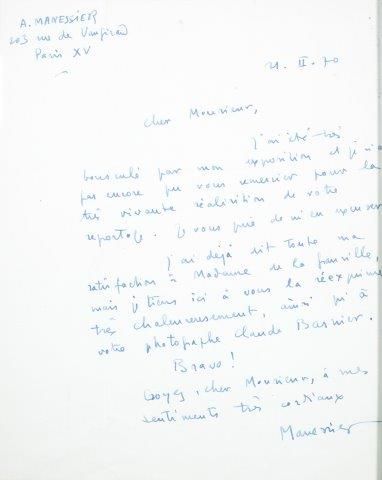 A. MANESSIER
203 rue de Vaugirard
Paris XV
21. II. 70
Cher Monsieur,
J'ai été très
bousculé par mon exposition et je n'ai
pas encore pu vous remercier pour la
très vivante réalisation de votre
reportage. Je vous prie de m'en excuser
J'ai déjà dit toute ma
satisfaction à Madame de la
mais je tiens ici à vous la réexprimer
très chaleureusement, ainsi qu'à
votre photographe Claude
Bravo !
Croyez, cher Monsieur, à mes
sentiments très cordiaux
Manessier